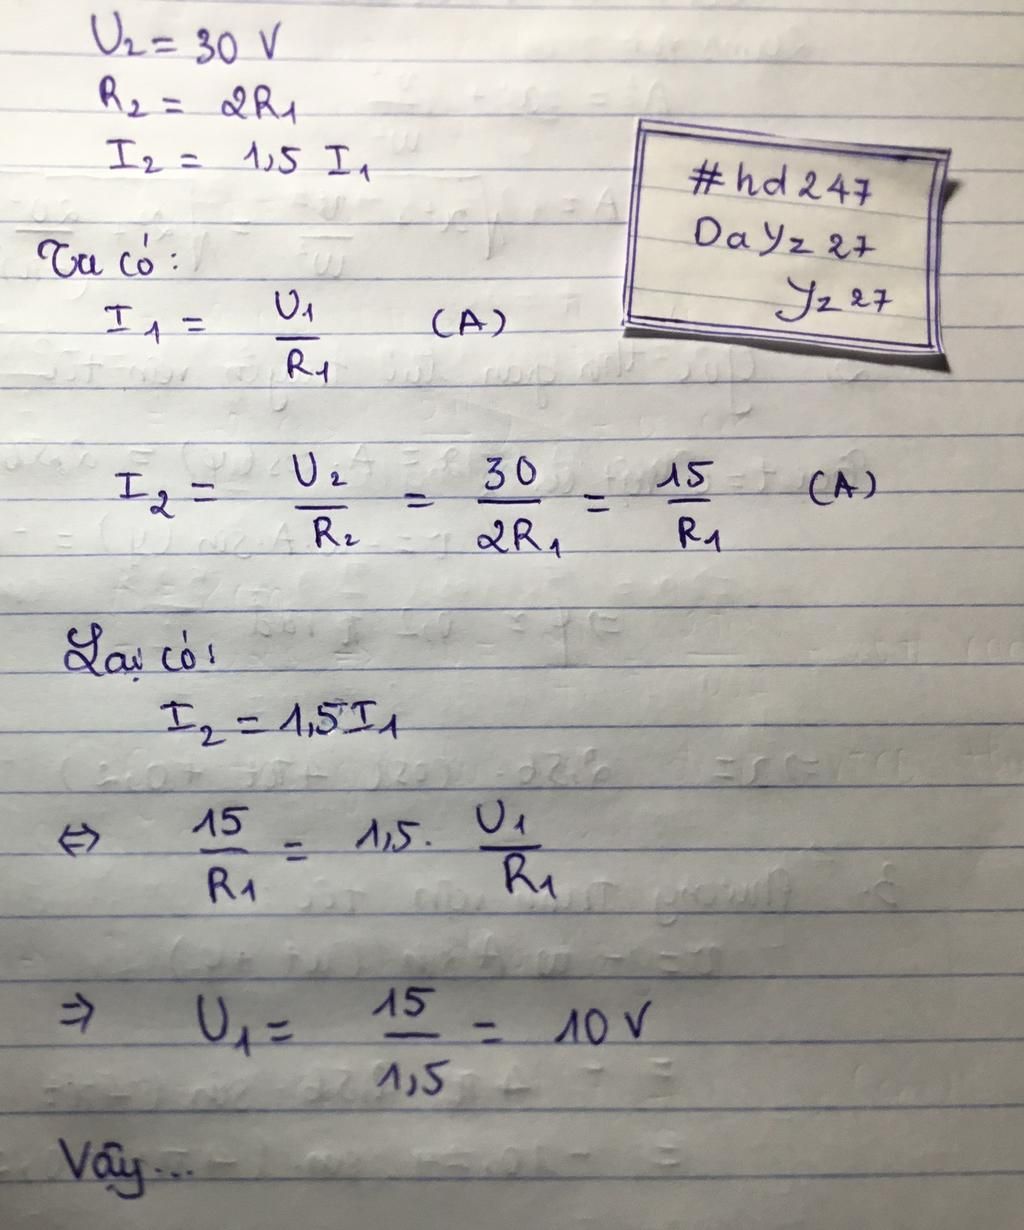 U₂ = 30 V
R₂ = 2R₁
I₂ = 1,5 I₁
#hd247
DaYz27
Yz27
Ta có:
I₁ = U₁/R₁ (A)
I₂ = U₂/R₂ = 30/2R₁ = 15/R₁ (A)
Lại có:
I₂ = 1,5I₁
⇔ 15/R₁ = 1,5. U₁/R₁
⇒ U₁ = 15/1,5 = 10 V
Vậy...